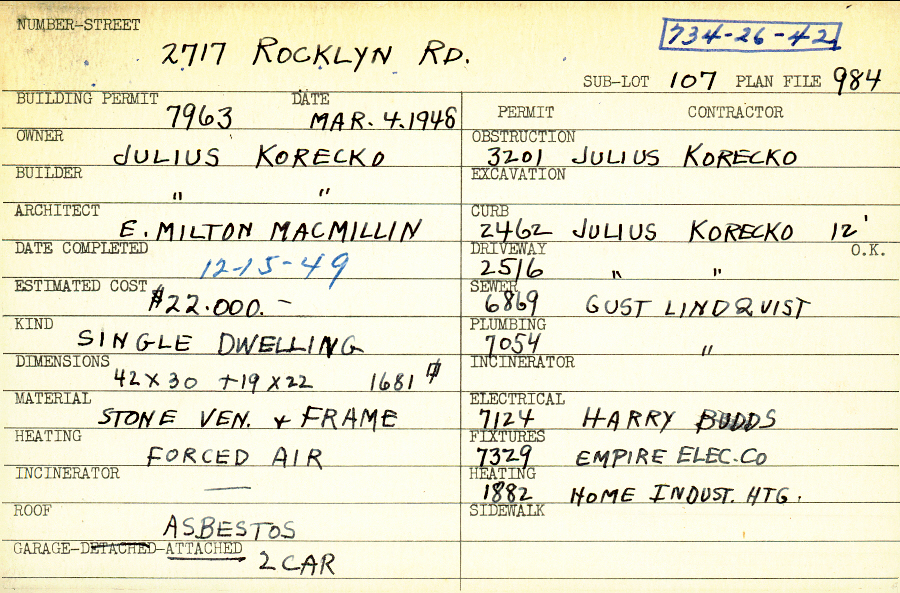 NUMBER-STREET
2717 ROCKLYN RD.
734-26-42
SUB-LOT 107 PLAN FILE 984
BUILDING PERMIT 7963 DATE MAR. 4. 1948
OWNER JULIUS KORECKO
BUILDER " "
ARCHITECT E. MILTON MACMILLIN
DATE COMPLETED 12-15-49
ESTIMATED COST $22.000.-
KIND SINGLE DWELLING
DIMENSIONS 42 X 30 + 19 X 22 1681
MATERIAL STONE VEN. & FRAME
HEATING FORCED AIR
INCINERATOR —
ROOF ASBESTOS
GARAGE-DETACHED-ATTACHED 2 CAR
PERMIT CONTRACTOR
OBSTRUCTION 3201 JULIUS KORECKO
EXCAVATION
CURB 2462 JULIUS KORECKO 12'
DRIVEWAY 2516 " " O.K.
SEWER 6869 GUST LINDQUIST
PLUMBING 7054 "
INCINERATOR
ELECTRICAL 7124 HARRY BUDDS
FIXTURES 7329 EMPIRE ELEC. CO
HEATING 1882 HOME INDUST. HTG.
SIDEWALK